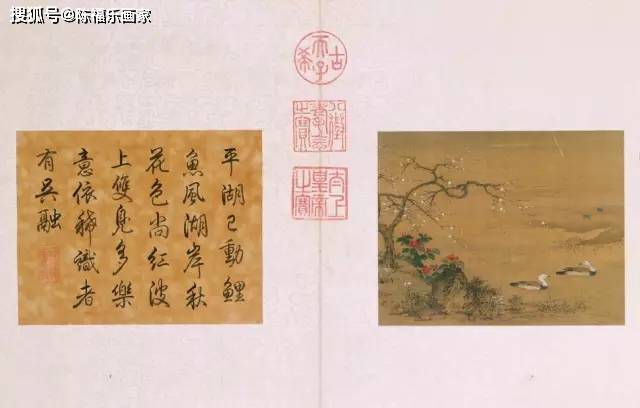 搜狐号@陈福乐画家
古希天子
八徵耄念之寶
太上皇帝之寶
平湖已動鯉
魚風湖岸秋
花色尚紅波
上雙鳧多樂
意依稀識者
有吳融